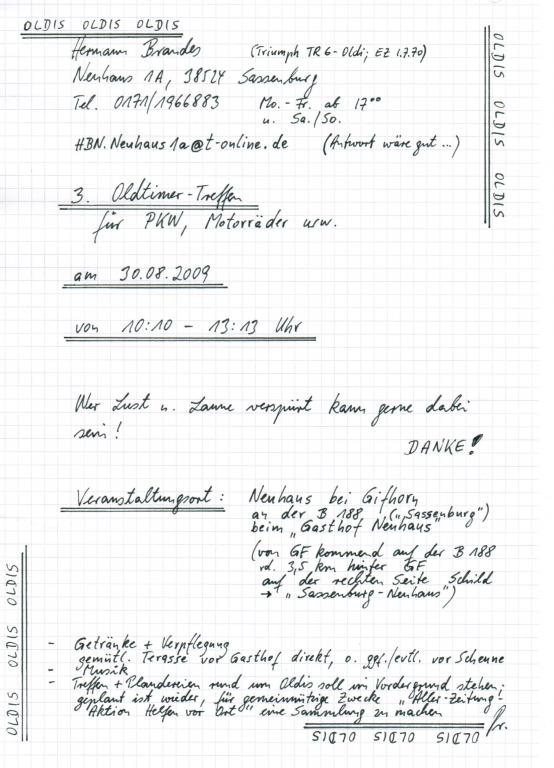 OLDIS OLDIS OLDIS
Hermann Brandes (Triumph TR6-Oldi; EZ 1.7.70)
Neuhaus 1A, 38524 Sassenburg
Tel. 0171/1966883 Mo.-Fr. ab 17°°
u. Sa./So.
HBN.Neuhaus1a@t-online.de (Antwort wäre gut ...)
OLDIS OLDIS OLDIS
3. Oldtimer-Treffen
für PKW, Motorräder usw.
am 30.08.2009
von 10:10 - 13:13 Uhr
Wer Lust u. Laune verspürt kann gerne dabei
sein!
DANKE!
Veranstaltungsort: Neuhaus bei Gifhorn
an der B 188, („Sassenburg")
beim „Gasthof Neuhaus"
(von GF kommend auf der B 188
rd. 3,5 km hinter GF
auf der rechten Seite Schild
→ „Sassenburg-Neuhaus")
OLDIS OLDIS OLDIS
- Getränke + Verpflegung
gemütl. Terasse vor Gasthof direkt, o. ggf./evtl. vor Scheune
- Musik
- Treffen + Plaudereien rund um Oldis soll im Vordergrund stehen;
geplant ist wieder, für gemeinnützige Zwecke „Aller-Zeitung!
Aktion Helfen vor Ort" eine Sammlung zu machen
OLDIS OLDIS OLDIS